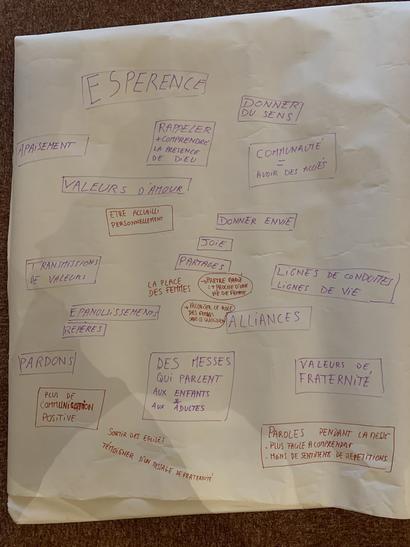 ESPERENCE
DONNER
DU SENS
RAPPELER
+ COMPRENDRE
LA PRESENCE
DE DIEU
APAISEMENT
COMMUNAUTÉ
=
AVOIR DES ALLIÉS
VALEURS D'AMOUR
ETRE ACCUEILLI
PERSONNELLEMENT
DONNER ENVIE
JOIE
PARTAGES
TRANSMISSIONS
DE VALEURS
LA PLACE
DES FEMMES
LIGNES DE CONDUITES
LIGNES DE VIE
EPANOUISSEMENTS
REPÈRES
DES FEMMES
ALLIANCES
PARDONS
DES MESSES
QUI PARLENT
AUX ENFANTS
AUX ADULTES
VALEURS DE
FRATERNITÉ
PLUS DE
COMMUNICATION
POSITIVE
SORTIR DES EGLISES
TÉMOIGNER D'UN MESSAGE DE FRATERNITÉ
PAROLES PENDANT LA MESSE
- PLUS FACILE A COMPRENDRE
- MOINS DE SENTIMENT DE RÉPÉTITIONS